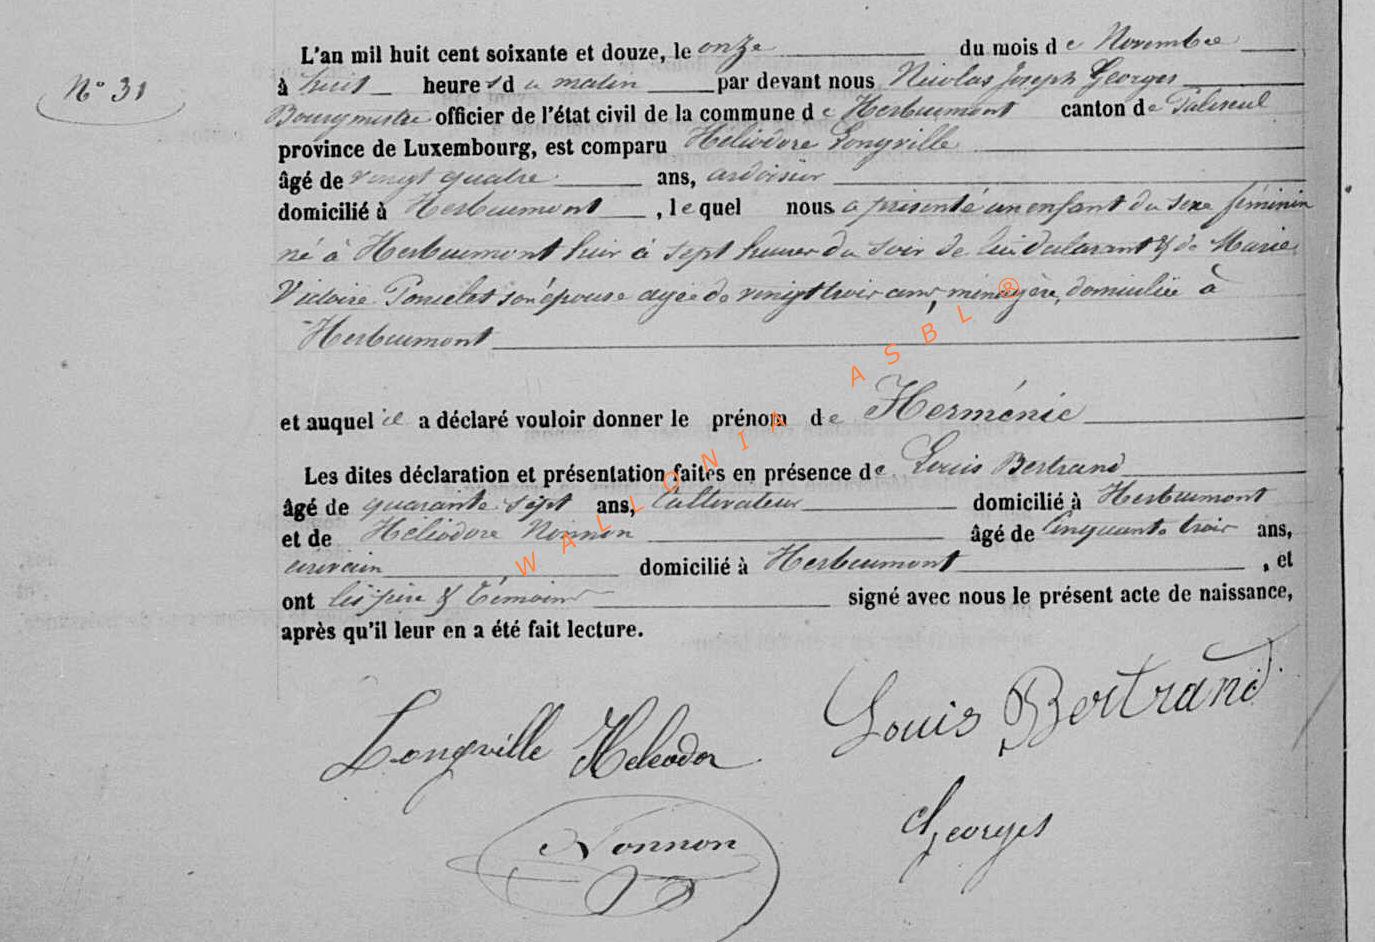 L'an mil huit cent soixante et douze, le onze du mois de Novembre
N° 31
à huit heures du matin par devant nous Nicolas Joseph Georges
Bourgmestre officier de l'état civil de la commune de Herbeumont canton de Paliseul
province de Luxembourg, est comparu Héliodore Longville
âgé de vingt quatre ans, ardoisier
domicilié à Herbeumont, lequel nous a présenté un enfant du sexe féminin
né à Herbeumont hier à sept heures du soir de lui déclarant & de Marie
Victoire Poncelet son épouse agée de vingt trois ans, ménagère, domiciliée à
Herbeumont
et auquel il a déclaré vouloir donner le prénom de Herménie
Les dites déclaration et présentation faites en présence de Louis Bertrand
âgé de quarante sept ans, Cultivateur domicilié à Herbeumont
et de Héliodore Nonnon âgé de Cinquante trois ans,
écrivain domicilié à Herbeumont, et
ont les père & témoins signé avec nous le présent acte de naissance,
après qu'il leur en a été fait lecture.
Longville Heleodor
Louis Bertrand
Nonnon
Georges
WALLONIA ASBL ®